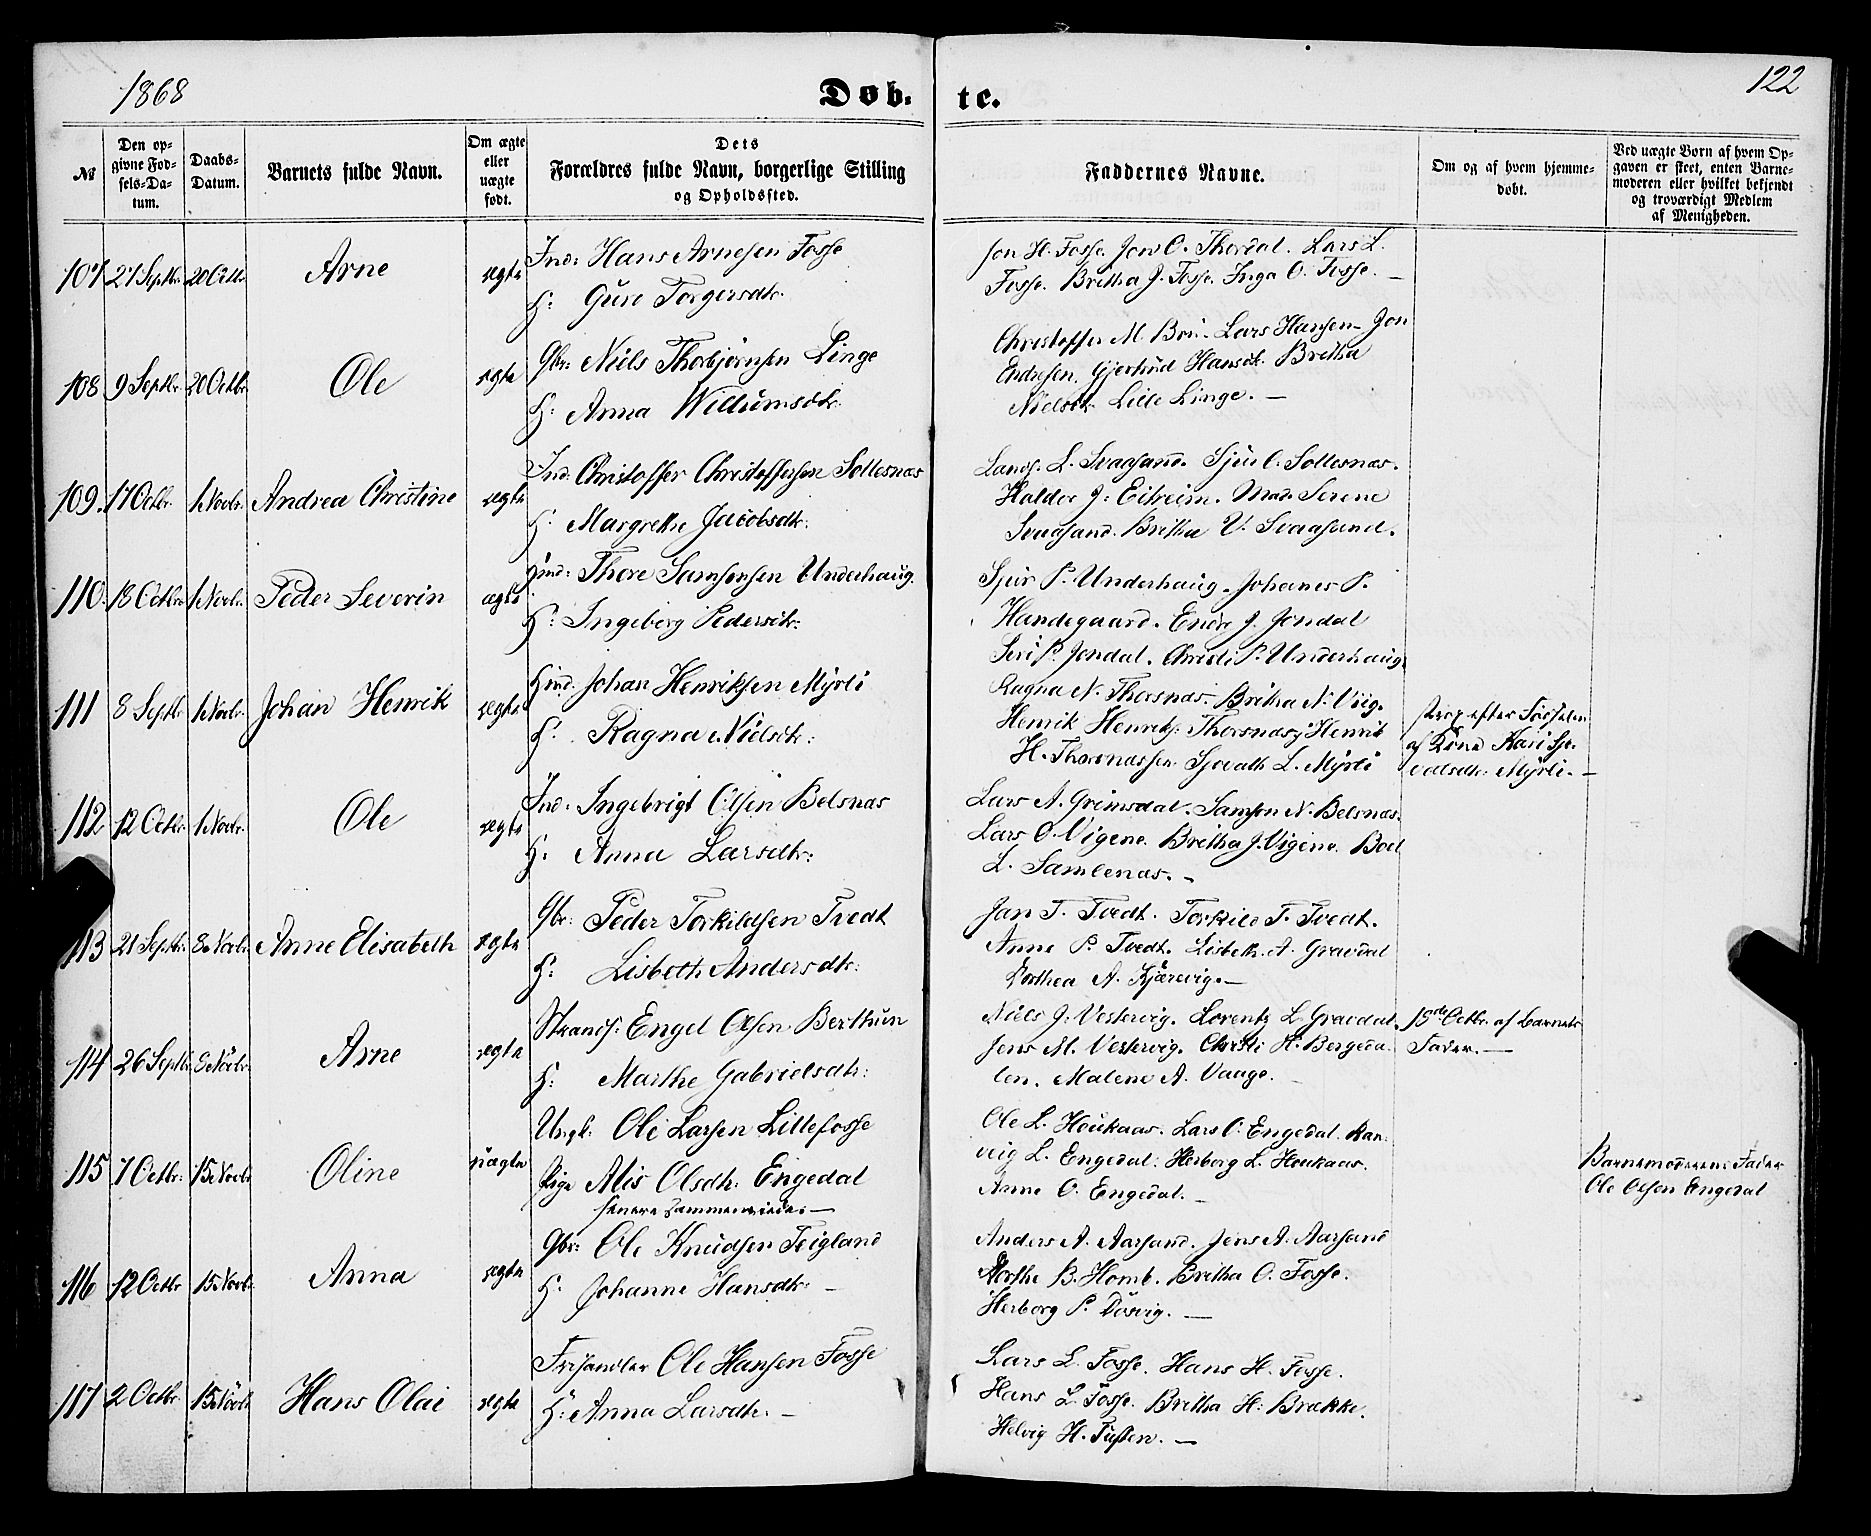 1868
Døb- te.
122
№
Den op-
givne Fød-
sels-Da-
tum.
Daabs-
Datum.
Barnets fulde Navn.
Om ægte
eller
uægte
født.
Dets
Forældres fulde Navn, borgerlige Stilling
og Opholdssted.
Faddernes Navne.
Om og af hvem hjemme-
døbt.
Ved uægte Børn af hvem Op-
gaven er skeet, enten Barne-
moderen eller hvilket bekjendt
og troværdigt Medlem
af Menigheden.
107 27 Septbr. 20 Octbr. Arne ægte
Ind: Hans Arnesen Fosse
H: Guro Torgersdtr:
Jon H. Fosse. Jon O. Thordal. Lars L.
Fosse. Britha J. Fosse. Inga O. Fosse. —
108 9 Septbr. 20 Octbr. Ole ægte
Gbr: Niils Thorbjørnsen Linge
H: Anna Willumsdtr:
Christoffer M. Hansen- Jon
Endresen. Gjertrud Hansdt. Britha
Nielsdtr. Lille Linge. —
109. 17 Octbr. 1 Novbr. Andrea Christine ægte
Ind: Christoffer Christoffersen Sollesnæs
H: Margrethe Jacobsdtr:
L. Svaasand. Sjur C. Sollesnæs.
Haldor J: Eitreim. Mad. Serene
Svaasand. Britha V. Svaasand.
110. 18 Octbr. 1 Novbr. Peder Severin ægte
Hmd: Thore Samsonsen Underhaug.
H: Ingeborg Pedersdtr:
Sjur P. Underhaug. Johanes P.
Handegaard. Endre J. Jondal
Siri P. Jondal. Christi P. Underhaug.
111 8 Septbr 1 Novbr. Johan Henrik ægte
Hmd. Johan Henriksen Myrli
H: Ragna Nielsdtr:
Ragna N. Thorsnæs. Britha N. Viig.
Henrik Henriks. Thorsnæs, Henrik
H. Thorsnæssen. Sjovath L. Myrli
strax efter Fødselen
af Kone Kari Sjo-
vatsdtr. Myrli. —
112 12 Octbr. 1 Novbr. Ole ægte
Ind: Ingebrigt Olsen Belsnæs
H: Anna Larsdtr:
Lars A. Grimsdal. Samson N. Belsnæs.
Lars O. Vigene. Britha J. Vigene. Boel
L. Samlenæs. -
113 21 Septbr. 8 Novbr. Anne Elisabeth ægte
Gbr: Peder Torkildsen Tvedt
H: Lisbeth Andersdtr:
Jan T. Tvedt. Torkild T. Tvedt.
Anne P. Tvedt. Lisbeth A. Gravdal
Dorthea A. Kjærevig. —
114 26 Septbr. 8 Novbr. Arne ægte
Strands: Engel Olsen Berthun
H: Marthe Gabrielsdtr:
Niels J: Vestervig. Lorentz L. Gravdal.
Jens M. Vestervig. Christi H. Bergeda-
len. Malene A. Vaage.
15de Octbr. af Barnets
Fader. —
115 7 Octbr: 15 Novbr. Oline uægte
Ungk: Ole Larsen Lillefosse
Pige Alis Olsdtr: Engedal
senere sammenviede. —
Ole L. Houkaas. Lars O. Engedal. Ran-
veig L. Engedal. Herborg L. Houkaas.
Anne O. Engedal. -
Barnemoderens Fader
Ole Olsen Engedal
116 12 Octbr 15 Novbr. Anna ægte
Gbr: Ole Knudsen Teigland
H: Johanne Hansdtr: -
Anders A. Aarsand. Jens A. Aarsand
Dorthe B. Homb. Britha O. Fosse.
Herborg P. Døsvig. —
117 2 Octbr. 15 Novbr. Hans Olai ægte
Ole Hansen Fosse
H: Anna Larsdtr. -
Lars L. Fosse. Hans H. Fosse.
Hans L. Fosse. Britha H. Brække.
Helvig H. Tusten. —